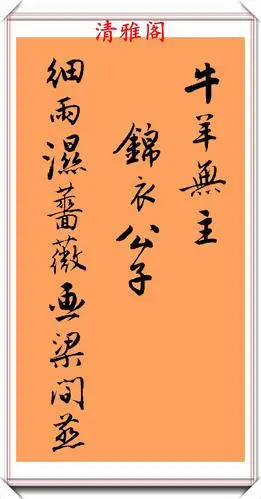 清雅阁
牛羊無主
錦衣公子
細雨濕薔薇画梁間燕